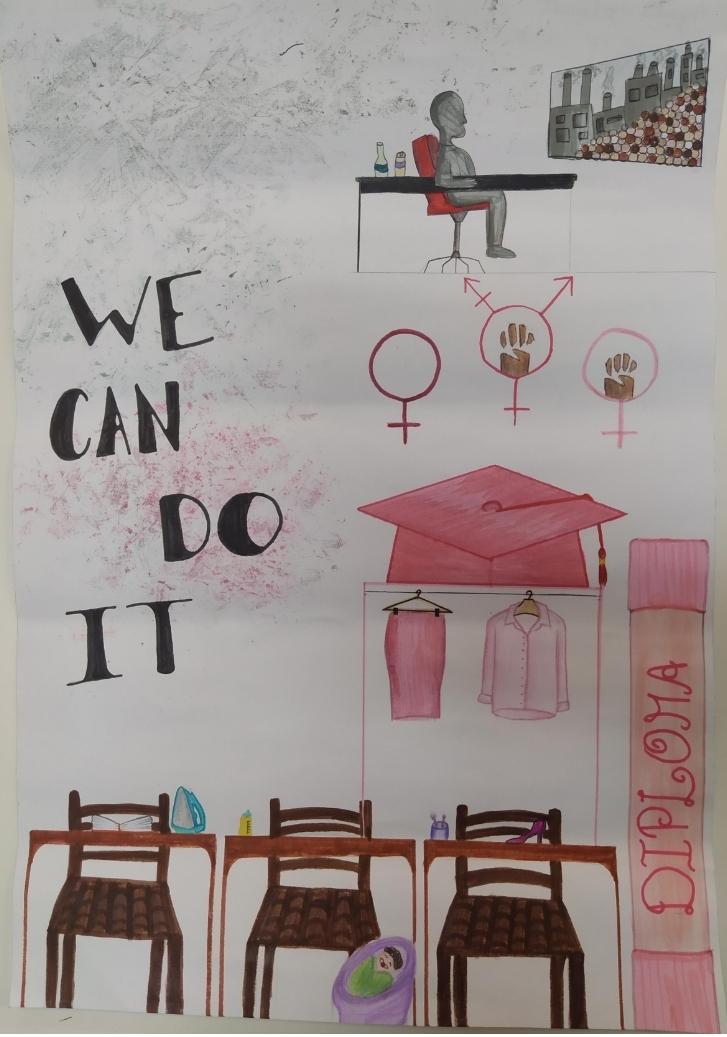 WE
CAN
DO
IT
DIPLOMA